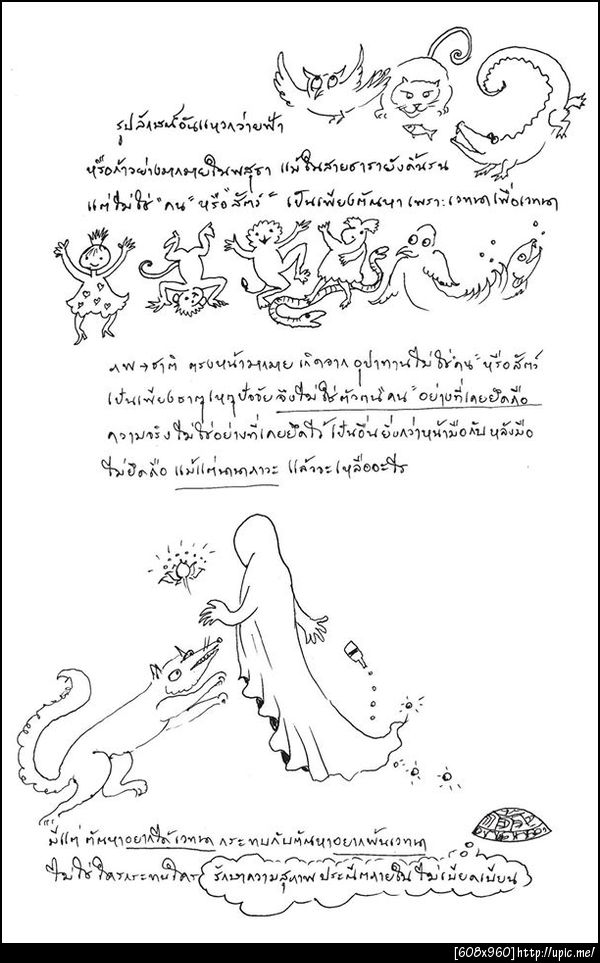 รูปลักษณ์อันแหวกว่ายฟ้า
หรือก้าวย่างมากมายในพสุธา แม้ในสายธารายังดิ้นรน
แต่ไม่ใช่ "คน" หรือ "สัตว์" เป็นเพียงตัณหา เพราะเวทนาเพื่อเวทนา
ภพ → ชาติ ตรงหน้ามากมาย เกิดจาก อุปาทานไม่ใช่"คน" หรือสัตว์
เป็นเพียงธาตุ เหตุปัจจัย จึงไม่ใช่ตัวตน"คน" อย่างที่เคยยึดถือ
ความจริง ไม่ใช่อย่างที่เคยยึดไว้ เป็นอื่นยิ่งกว่าหน้ามือกับหลังมือ
ไม่ยึดถือ แม้แต่นานาภาวะ แล้วจะเหลืออะไร
มีแต่ ตัณหาอยากได้เวทนา กระทบกับตัณหาอยากพ้นเวทนา
ไม่ใช่ใครกระทบใคร รักษาความสุภาพ ประณีตภายใน ไม่เบียดเบียน
[608x960]http://upic.me/